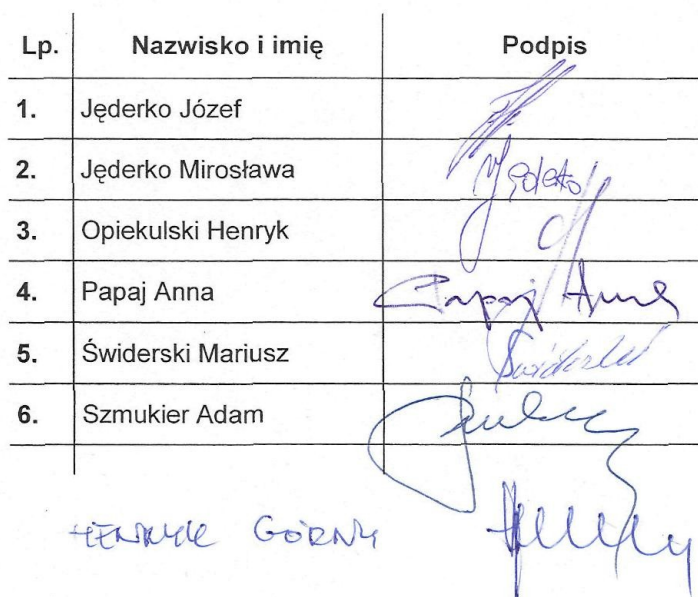 Lp. Nazwisko i imię Podpis
1. Jęderko Józef
2. Jęderko Mirosława Jęderko
3. Opiekulski Henryk
4. Papaj Anna Papaj Anna
5. Świderski Mariusz Świderski
6. Szmukier Adam
HENRYK GÓRNY